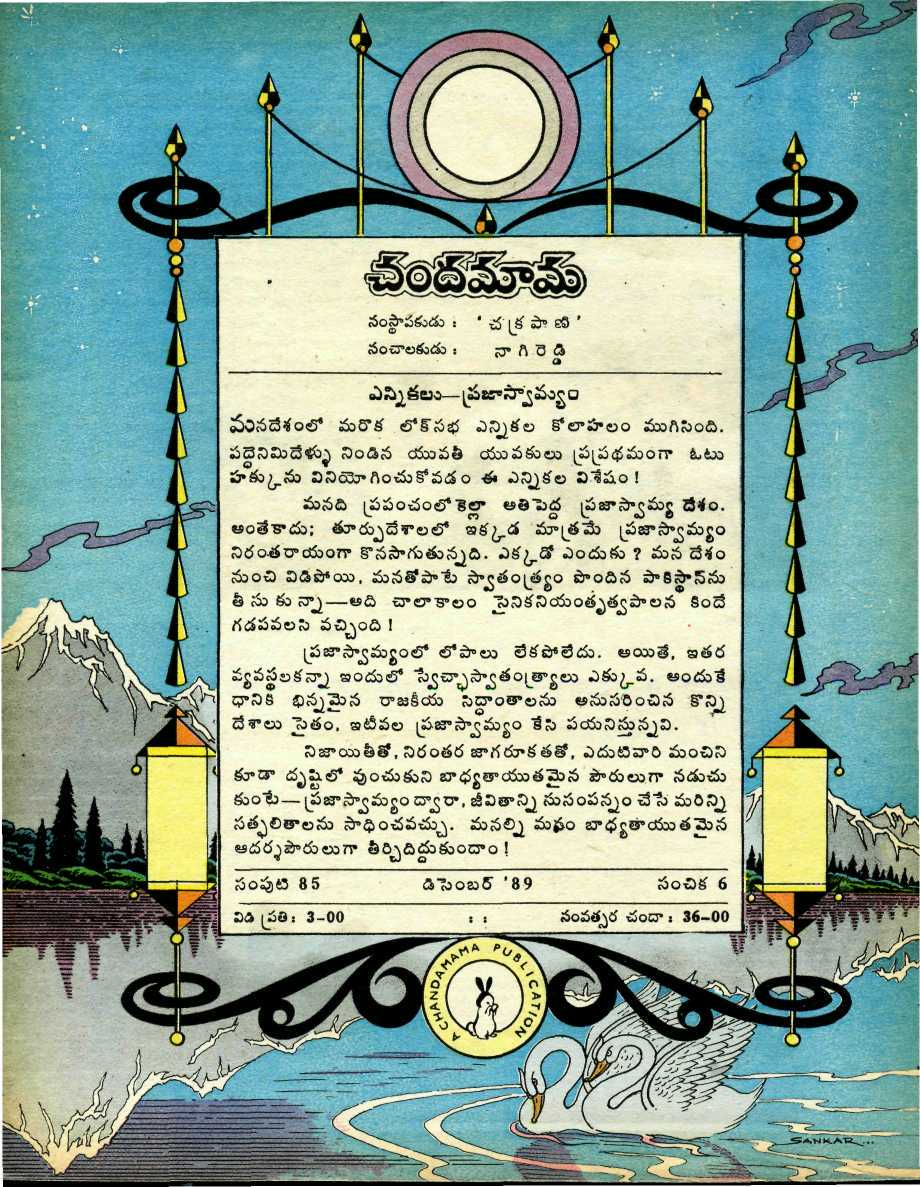 చందమామ
సంస్థాపకుడు : ' చక్రపాణి '
సంచాలకుడు : నాగిరెడ్డి
ఎన్నికలు—ప్రజాస్వామ్యం
మనదేశంలో మరొక లోక్‌సభ ఎన్నికల కోలాహలం ముగిసింది.
పద్దెనిమిదేళ్ళు నిండిన యువతీ యువకులు ప్రప్రథమంగా ఓటు
హక్కును వినియోగించుకోవడం ఈ ఎన్నికల విశేషం!
మనది ప్రపంచంలోకెల్లా అతిపెద్ద ప్రజాస్వామ్య దేశం.
అంతేకాదు; తూర్పుదేశాలలో ఇక్కడ మాత్రమే ప్రజాస్వామ్యం
నిరంతరాయంగా కొనసాగుతున్నది. ఎక్కడో ఎందుకు ? మన దేశం
నుంచి విడిపోయి, మనతోపాటే స్వాతంత్ర్యం పొందిన పాకిస్థాన్‌ను
తీసుకున్నా—అది చాలాకాలం సైనికనియంతృత్వపాలన కిందే
గడపవలసి వచ్చింది!
ప్రజాస్వామ్యంలో లోపాలు లేకపోలేదు. అయితే, ఇతర
వ్యవస్థలకన్నా ఇందులో స్వేచ్ఛాస్వాతంత్ర్యాలు ఎక్కువ. అందుకే
ధానికి భిన్నమైన రాజకీయ సిద్ధాంతాలను అనుసరించిన కొన్ని
దేశాలు సైతం, ఇటీవల ప్రజాస్వామ్యం కేసి పయనిస్తున్నవి.
నిజాయితీతో, నిరంతర జాగరూకతతో, ఎదుటివారి మంచిని
కూడా దృష్టిలో వుంచుకుని బాధ్యతాయుతమైన పౌరులుగా నడుచు
కుంటే—ప్రజాస్వామ్యం ద్వారా, జీవితాన్ని సుసంపన్నం చేసే మరిన్ని
సత్ఫలితాలను సాధించవచ్చు. మనల్ని మనం బాధ్యతాయుతమైన
ఆదర్శపౌరులుగా తీర్చిదిద్దుకుందాం!
సంపుటి 85 డిసెంబర్ '89 సంచిక 6
విడి ప్రతి: 3-00 : : సంవత్సర చందా: 36-00
A CHANDAMAMA PUBLICATION
SANKAR...